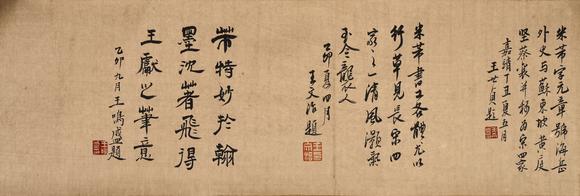 米芾字元章號海岳
外史与蘇東坡黃庭
堅蔡襄并稱為宋四家
嘉靖丁丑夏五月
王世貞題
米芾書工各體尤以
行草見長宋四
家之一清風灝氣
至今襲人
卯夏四月
王文治題
芾特妙於翰
墨沈著飛得
王獻之筆意
乙卯九月王鳴盛題